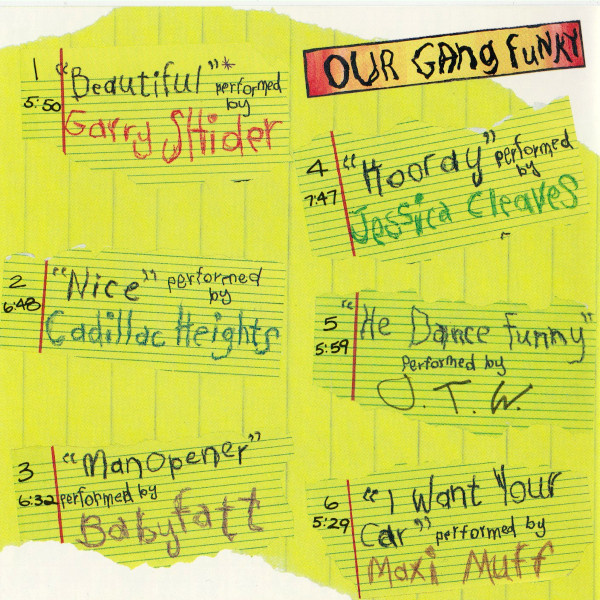 OUR GANG FUNKY
1 "Beautiful"* performed
5:50 by
Garry Shider
2 "Nice" performed
6:48 by
Cadillac Heights
3 "ManOpener"
6:32 performed by
Babyfatt
4 "Hooray" performed
7:47 by
Jessica Cleaves
5 "He Dance Funny"
5:59 performed by
J.T.W.
6 "I Want Your
5:29 Car" performed by
Maxi Muff